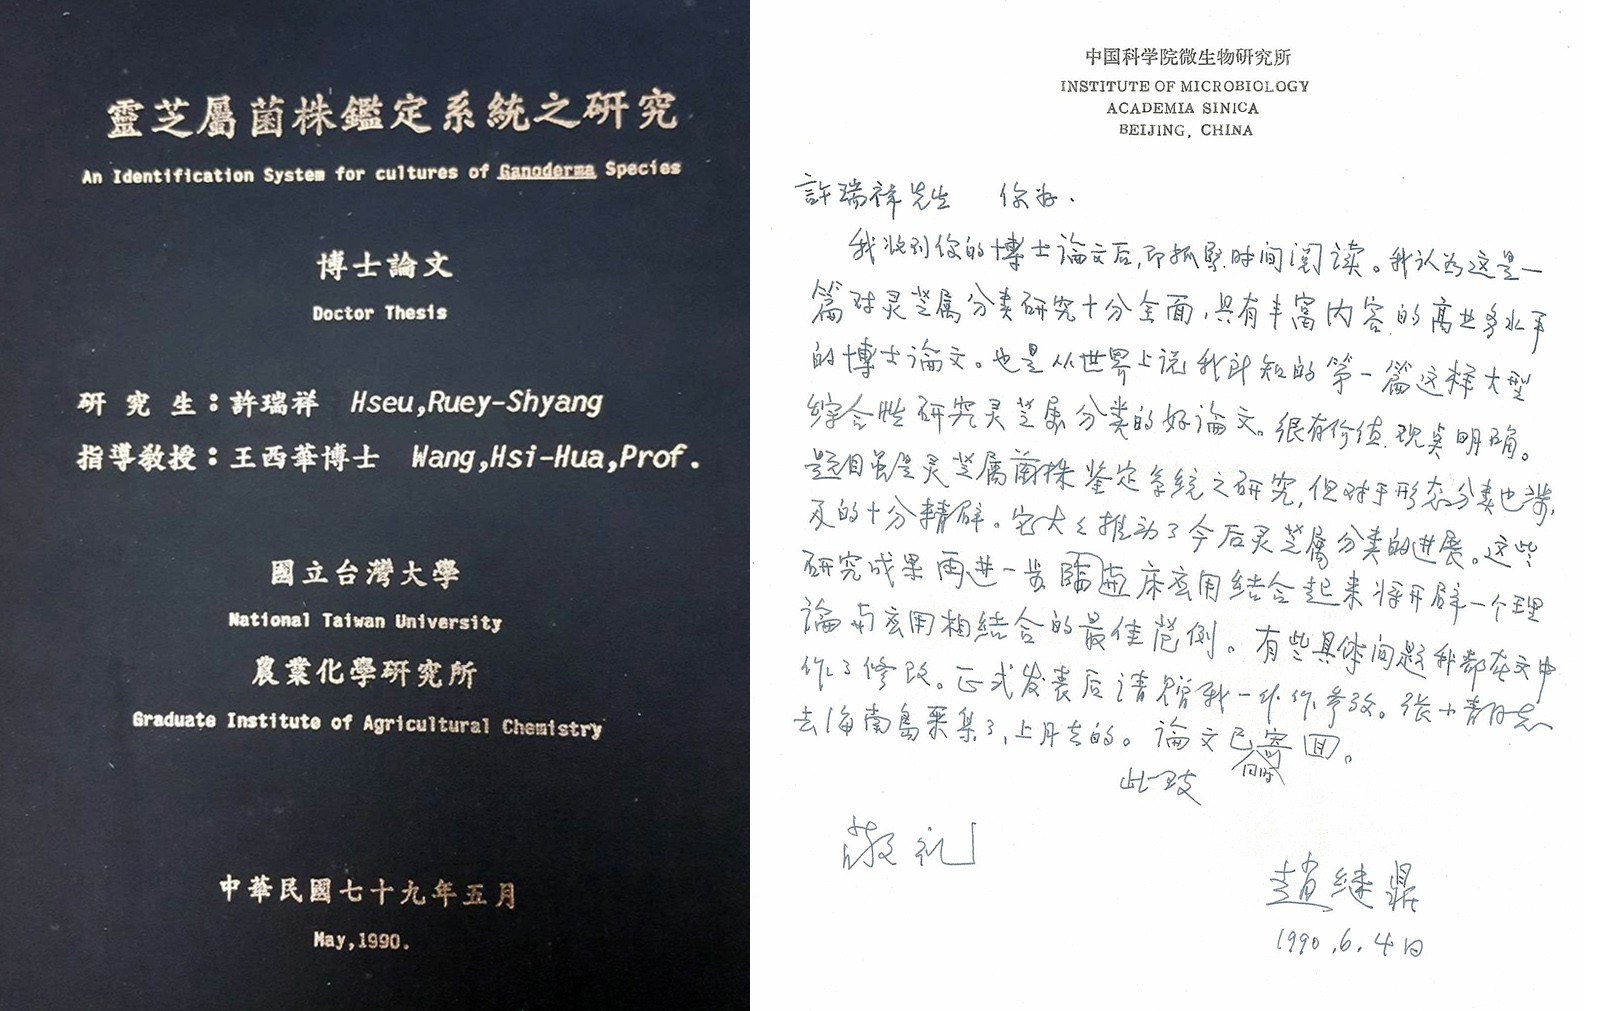 靈芝屬菌株鑑定系統之研究
An Identification System for cultures of Ganoderma Species
博士論文
Doctor Thesis
研究生：許瑞祥 Hseu,Ruey-Shyang
指導教授：王西華博士 Wang,Hsi-Hua,Prof.
國立台灣大學
National Taiwan University
農業化學研究所
Graduate Institute of Agricultural Chemistry
中華民國七十九年五月
May,1990.
中国科学院微生物研究所
INSTITUTE OF MICROBIOLOGY
ACADEMIA SINICA
BEIJING, CHINA
許瑞祥先生 你好.
我收到你的博士论文后,即抓紧时间阅读。我认为这是一
篇对灵芝属分类研究十分全面,具有丰富内容的高业务水平
的博士论文。也是从世界上说我所知的第一篇这样大型
综合性研究灵芝属分类的好论文。很有价值,观点明确。
题目虽是灵芝属菌株鉴定系统之研究,但对于形态分类也涉
及的十分精辟。它大大推动了今后灵芝属分类的进展。这些
研究成果再进一步临床应用结合起来将开辟一个理
論与应用相结合的最佳范例。有些具体问题我都在文中
作了修改。正式发表后请赠我一本作参考。张小青同志
去海南島采集了,上月去的。论文已同时寄回。
此致
敬礼
趙继鼎
1990.6.4日